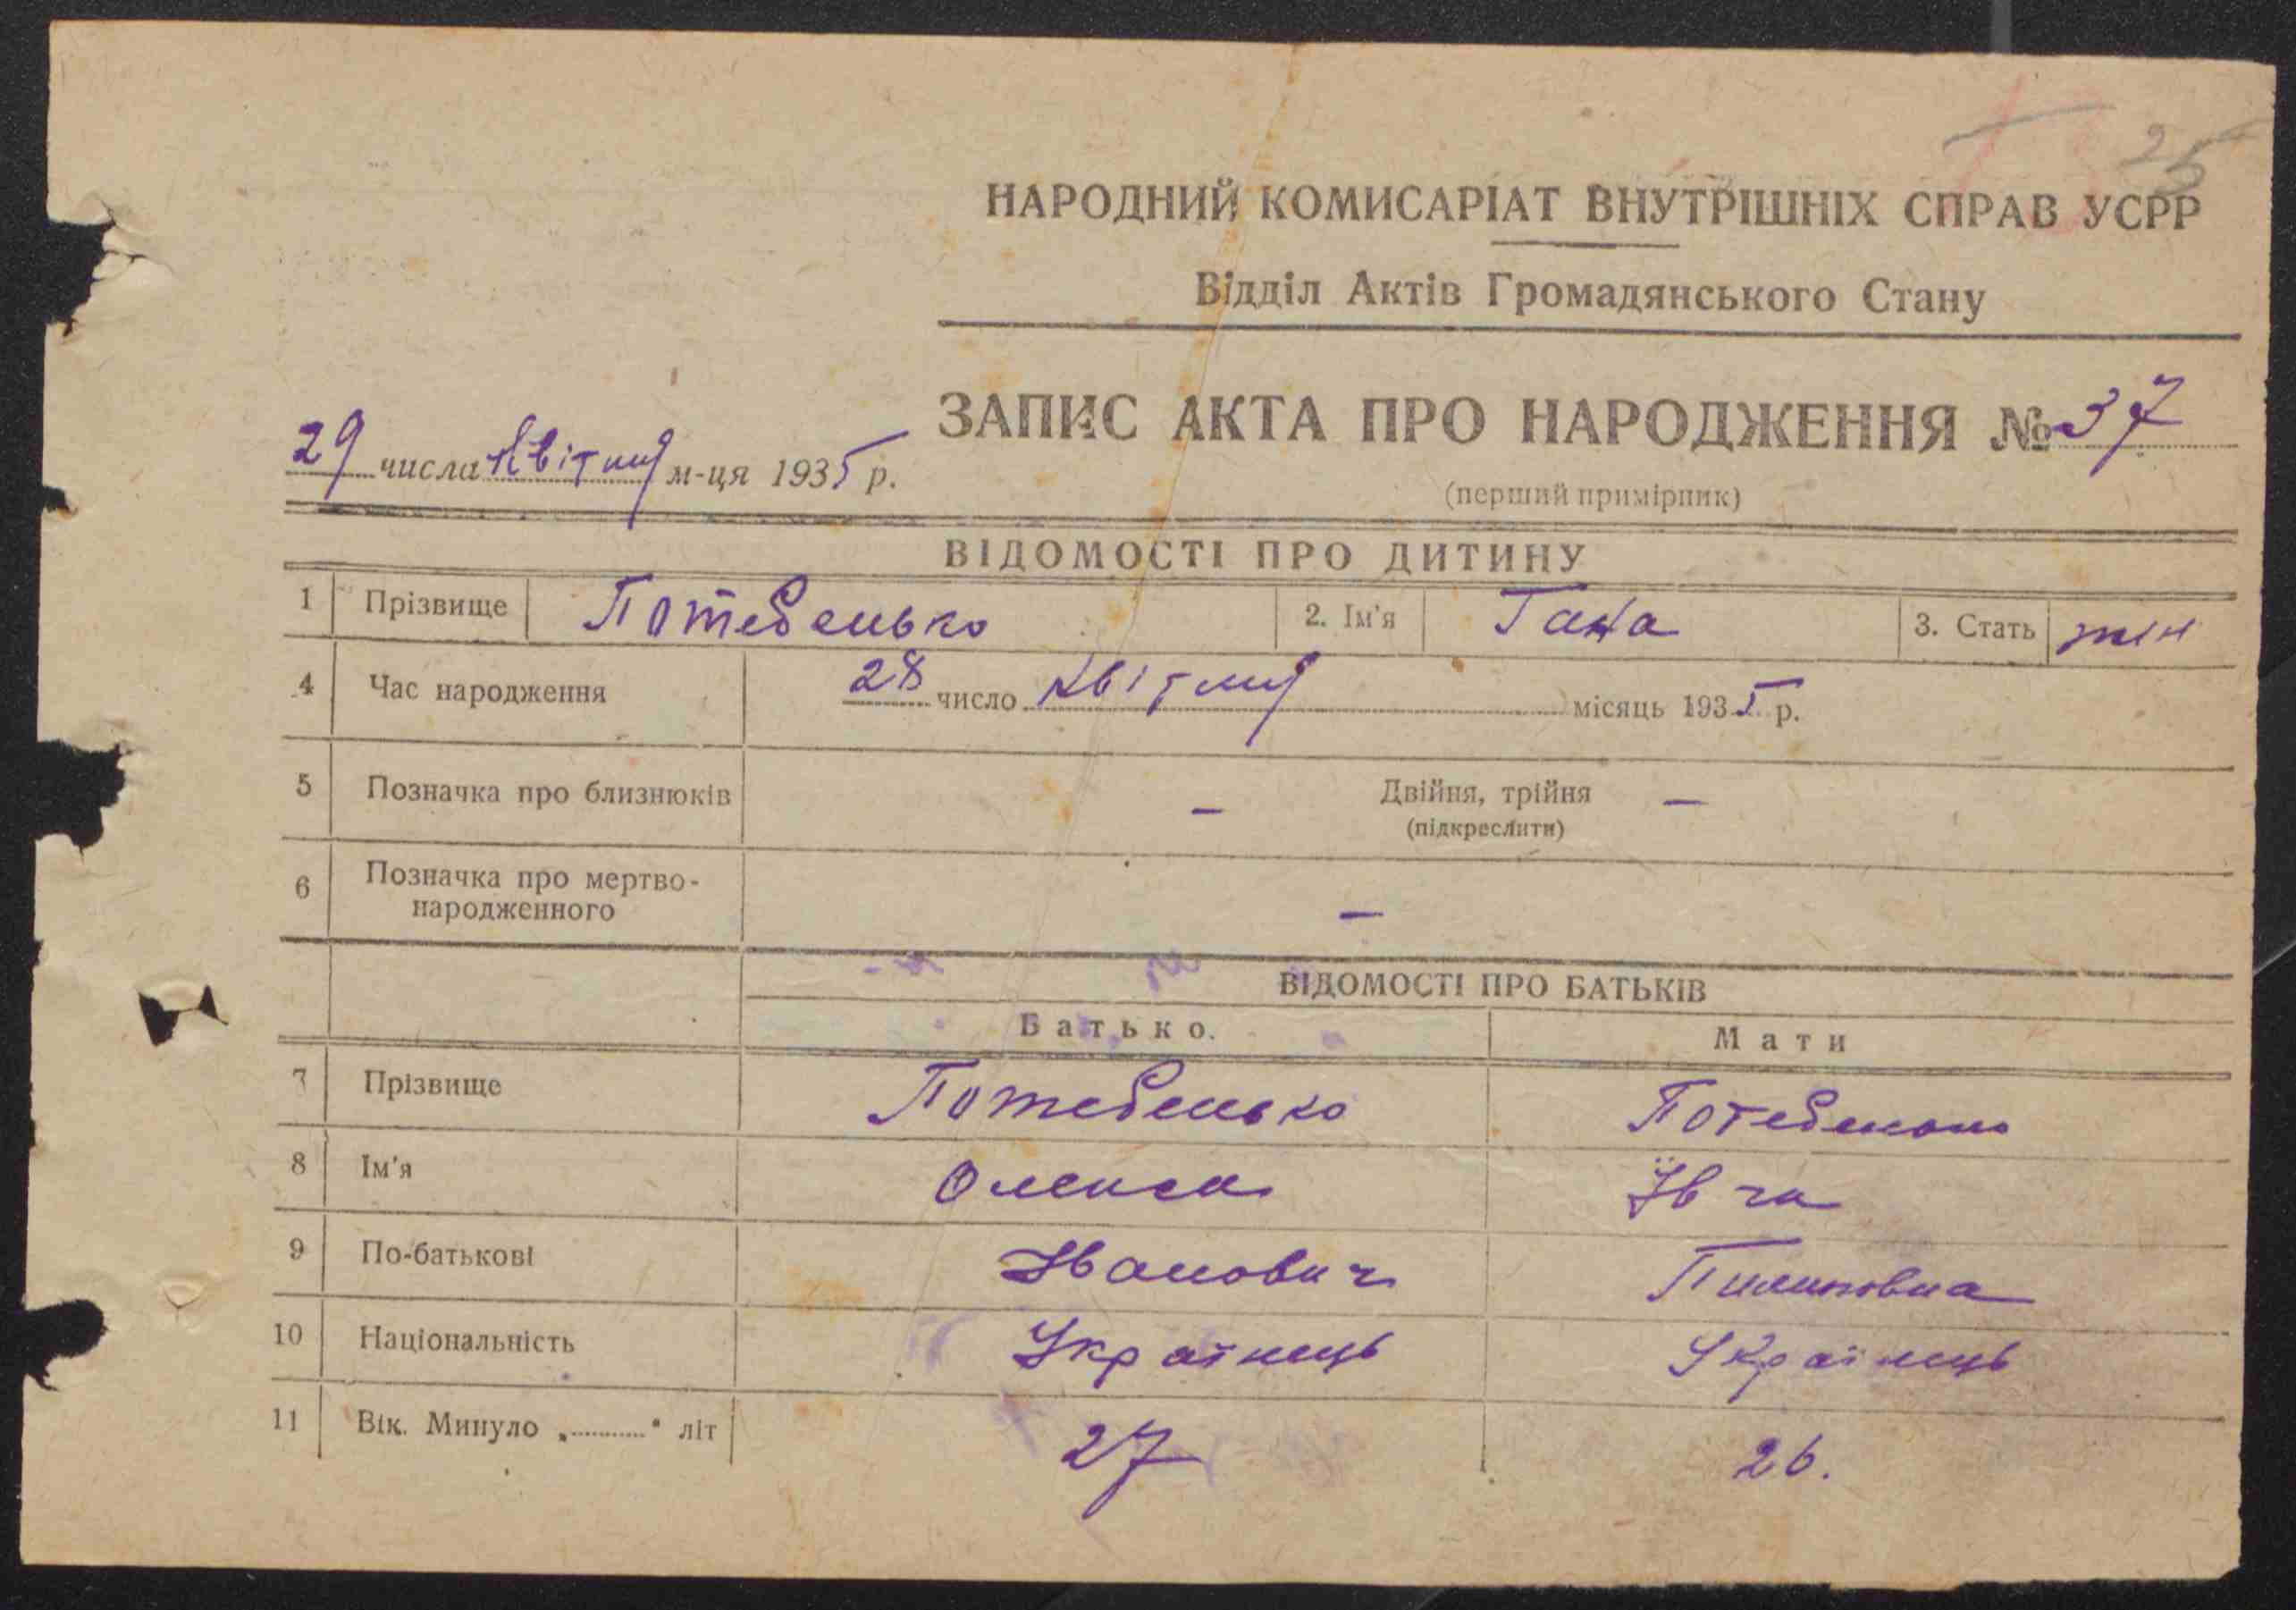 25
НАРОДНИЙ КОМИСАРІАТ ВНУТРІШНІХ СПРАВ УСРР
Відділ Актів Громадянського Стану
ЗАПИС АКТА ПРО НАРОДЖЕННЯ № 37
29 числа Квітня м-ця 1935 р.
(перший примірник)
ВІДОМОСТІ ПРО ДИТИНУ
1 Прізвище Потебенько 2. Ім'я Гана 3. Стать жін
4 Час народження 28 число Квітня місяць 1935 р.
5 Позначка про близнюків – Двійня, трійня –
(підкреслити)
6 Позначка про мертво-
народженного –
ВІДОМОСТІ ПРО БАТЬКІВ
Батько. Мати
7 Прізвище Потебенько Потебенько
8 Ім'я Олекса Ївга
9 По-батькові Іванович Пилиповна
10 Національність Українець Українець
11 Вік. Минуло „..........“ літ 27 26.